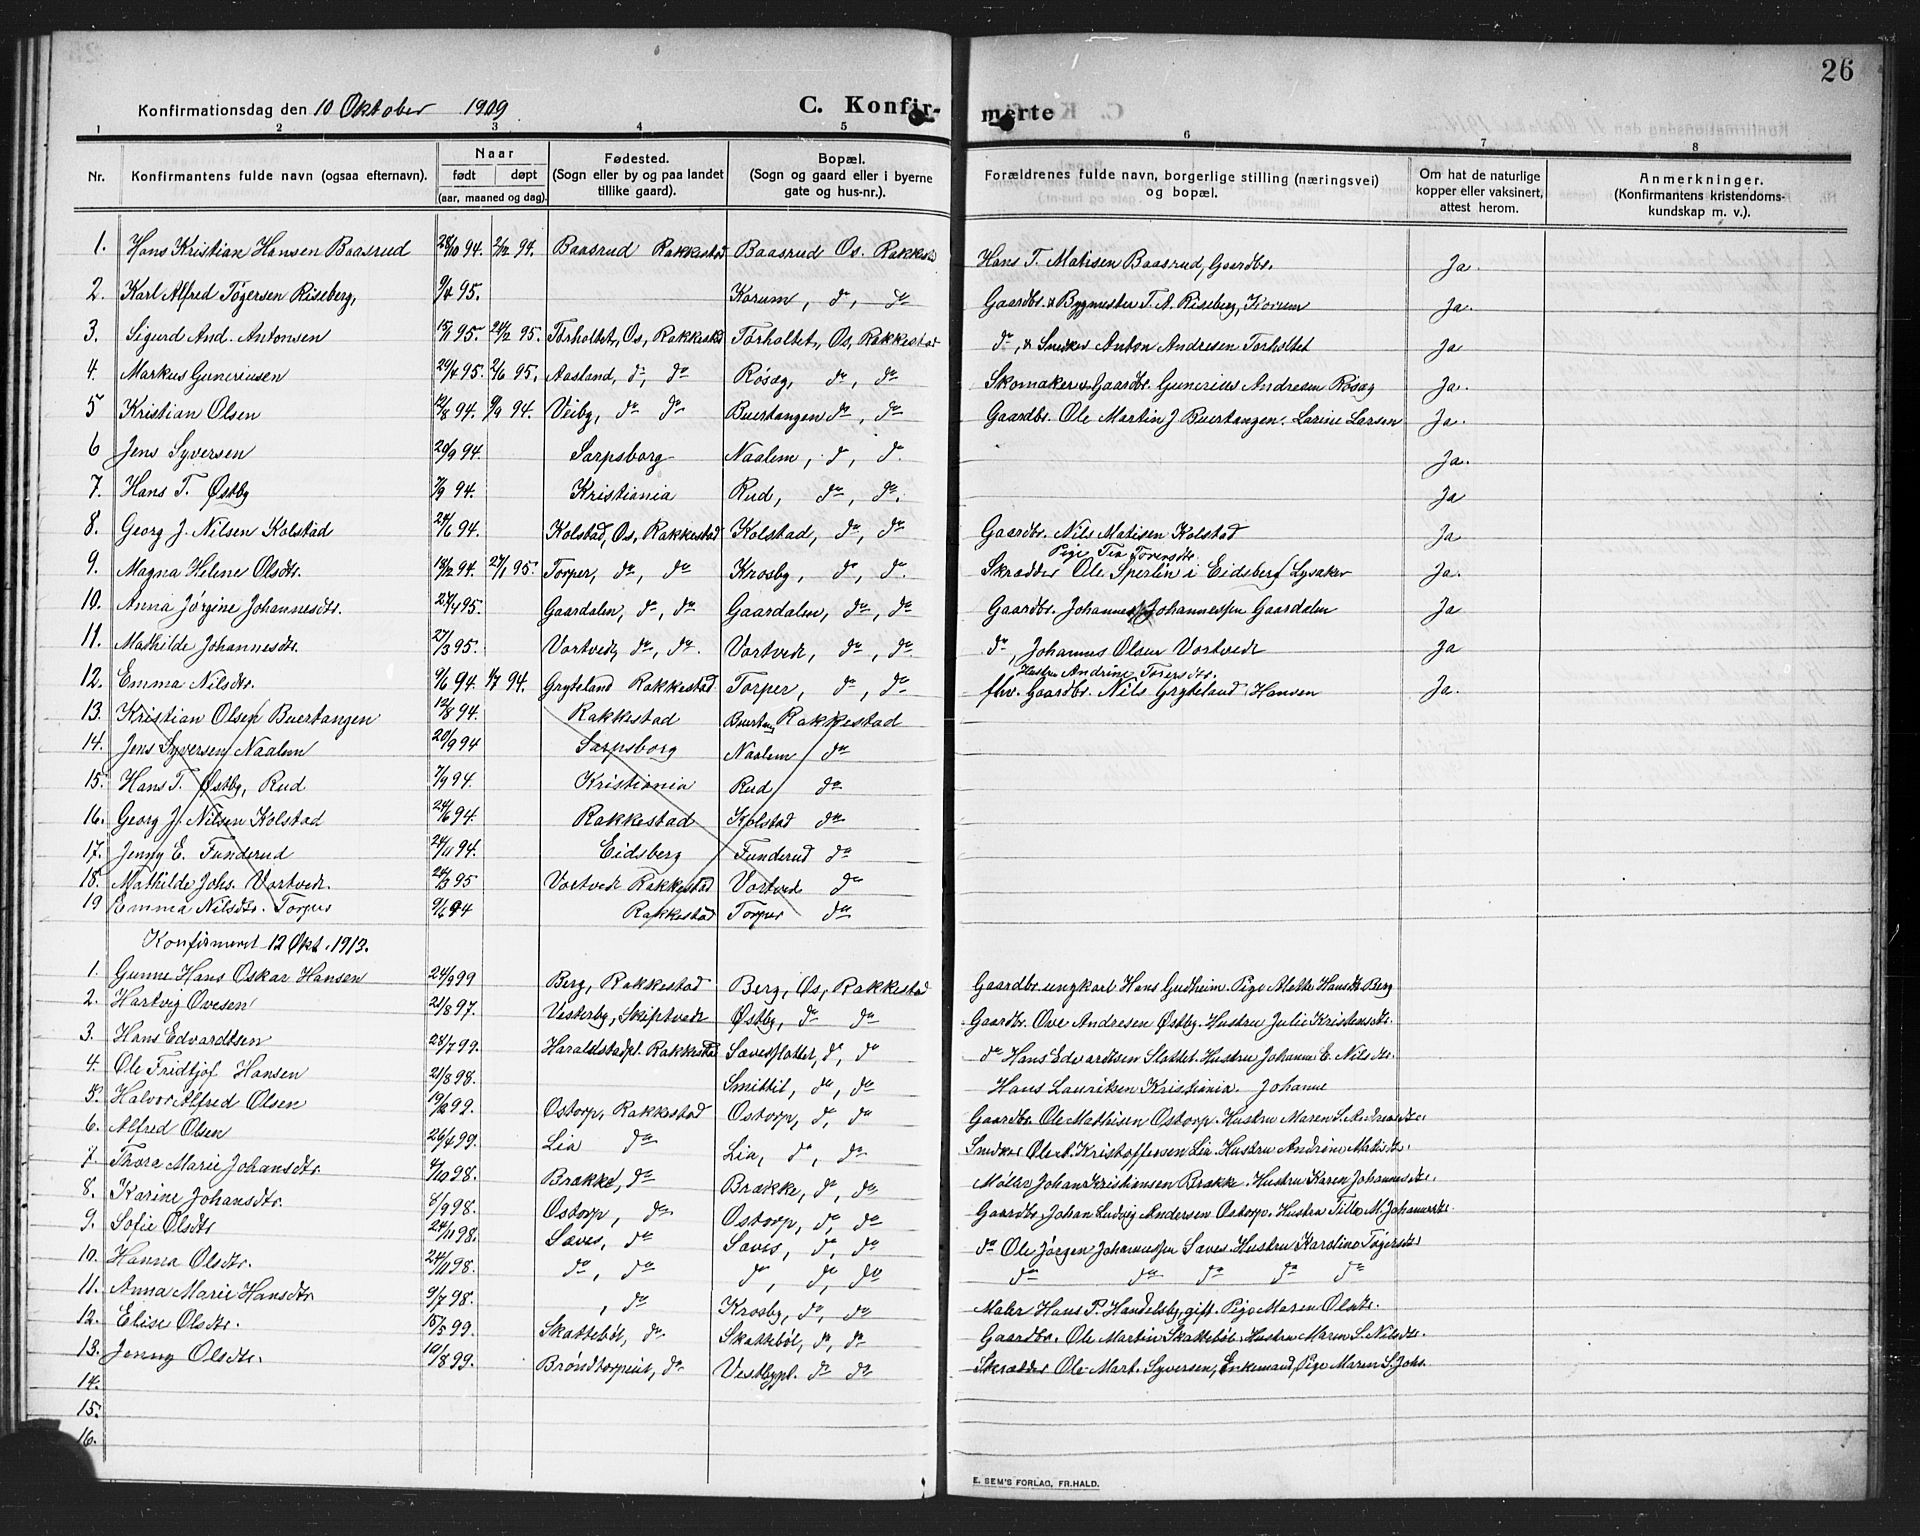 26
Konfirmationsdag den 10 Oktober 1909
C. Konfir-
merte
1 2 3 4 5 6 7 8
Nr.
Konfirmantens fulde navn (ogsaa efternavn).
Naar
født døpt
(aar, maaned og dag).
Fødested.
(Sogn eller by og paa landet
tillike gaard).
Bopæl.
(Sogn og gaard eller i byerne
gate og hus-nr.).
Forældrenes fulde navn, borgerlige stilling (næringsvei)
og bopæl.
Om hat de naturlige
kopper eller vaksinert,
attest herom.
Anmerkninger.
(Konfirmantens kristendoms-
kundskap m. v.).
1. Hans Kristian Hansen Baasrud 28/10 94. 2/12 94. Baasrud Rakkestad Baasrud Os. Rakkes Hans T. Matisen Baasrud, Gaardbr. Ja.
2. Karl Alfred Tøgersen Riseberg, 9/4 95. Korum, do, do Gaardbr. & Bygmester T. A. Riseberg, Korum Ja.
3. Sigurd And. Antonsen 15/1 95. 24/2 95. Torholtet, Os, Rakkestd Torholtet, Os, Rakkestad do, & Snedker Anton Andresen Torholtet Ja
4. Markus Guneriusen 29/4 95. 2/6 95. Aasland, do, do Røsæg, do, do Skomaker & Gaardbr. Gunerius Andresen Røsæg Ja.
5 Kristian Olsen 12/8 94. 9/9 94. Veiby, do do Buertangen do, do Gaardbr. Ole Martin J Buertangen. Larine Larsen Ja.
6 Jens Syversen 20/9 94. Sarpsborg Naalem, do, do. Ja.
7. Hans T. Østby 7/9 94. Kristiania Rud, do, do. Ja
8. Georg J. Nilsen Kolstad 24/6 94. Kolstad, Os, Rakkestad Kolstad, do, do Gaardbr. Nils Matisen Kolstad Ja
Pige Tea Torersdtr.
9. Magna Helene Olsdtr. 18/12 94. 27/1 95. Torper, do, do Krosby, do, do. Skrædder Ole Sperlin i Eidsberg Lysaker Ja.
10. Anna Jørgine Johannesdtr. 27/4 95. Gaardalen, do, do Gaardalen, do, do Gaardbr. Johannes Johannessen Gaardalen Ja
11. Mathilde Johannesdtr. 27/3 95. Vortvedt, do, do. Vortvedt, do, do. do, Johannes Olsen Vortvedt Ja
Hustru Andrine Torersdtr.
12. Emma Nilsdtr. 9/6 94. 1/7 94. Gryteland Rakkestad Torper, do, do fhv. Gaardbr. Nils Gryteland Hansen Ja.
13. Kristian Olsen Buertangen 12/8 94. Rakkestad Buertan Rakkestad
14. Jens Syversen Naalem 20/9 94 Sarpsborg Naalem do
15. Hans T. Østby, Rud 7/9 94. Kristiania Rud do
16. Georg J. Nilsen Kolstad 24/6 94. Rakkestad Kolstad do
17. Jenny E. Funderud 24/11 94. Eidsberg Funderud do
18. Mathilde Johs. Vortvedt. 24/3 95 Vortvedt Rakkestad Vortvedt do
19 Emma Nilsdtr. Torper 9/6 94 Rakkestad Torper do
Konfirmeret 12 Okt. 1913.
1. Gunne Hans Oskar Hansen 24/9 99 Berg, Rakkestad Berg, Os, Rakkestad Gaardbr. ungkarl Hans Gudheim. Pige Mathe Hansdtr Berg
2. Hartvig Ovesen 21/8 97. Vesterby, Skiptvedt Østby, do do Gaardbr. Ove Andresen Østby. Hustru Julie Kristensdtr.
3. Hans Edvardtsen 28/7 99. Haraldstadpl. Rakkestad Savesslottet, do, do do Hans Edvardtsen Slottet. Hustru Johanne E. Nilsdtr.
4. Ole Fridtjof Hansen 21/8 98. Smittil, do, do Hans Lauritsen Kristiania. Johanne
5. Halvor Alfred Olsen 19/12 99. Ostorp, Rakkestad Ostorp, do, do Gaardbr. Ole Mathisen Ostorp. Hustru Maren S. Andreasdtr.
6. Alfred Olsen 26/4 99. Lia do Lia, do, do Snedker Ole A. Kristoffersen Lia. Hustru Andrine Matisdtr.
7. Thora Marie Johansdtr. 4/10 98. Brække, do Brække, do, do Møller Johan Kristiansen Brække. Hustru Karen Johannesdtr.
8. Karine Johansdtr. 8/9 98. Ostorp, do Ostorp, do, do Gaardbr. Johan Ludvig Andersen Ostorp. Hustru Tille M. Johannesdtr.
9. Sofie Olsdtr 24/11 98. Saves, do Saves, do, do do Ole Jørgen Johannessen Saves. Hustru Karoline Tøgersdtr
10. Hanna Olsdtr. 24/11 98. do, do do, do, do do do do do do
11. Anna Marie Hansdtr 9/7 98. , do Krosby, do, do Maler Hans P. Handelsby, gift. Pige Maren Olsdtr.
12. Elise Olsdtr. 15/5 99. Skattebøl, do Skattebøl, do, do Gaardbr. Ole Martin Skattebøl. Hustru Maren S. Nilsdtr.
13. Jenny Olsdtr. 10/8 99. Brøndtorpeiet, do Vestbypl. do do Skrædder Ole Mart. Syversen, Enkemand, Pige Maren S. Johs.
14.
15.
16.
E. SEM'S FORLAG, FR.HALD.